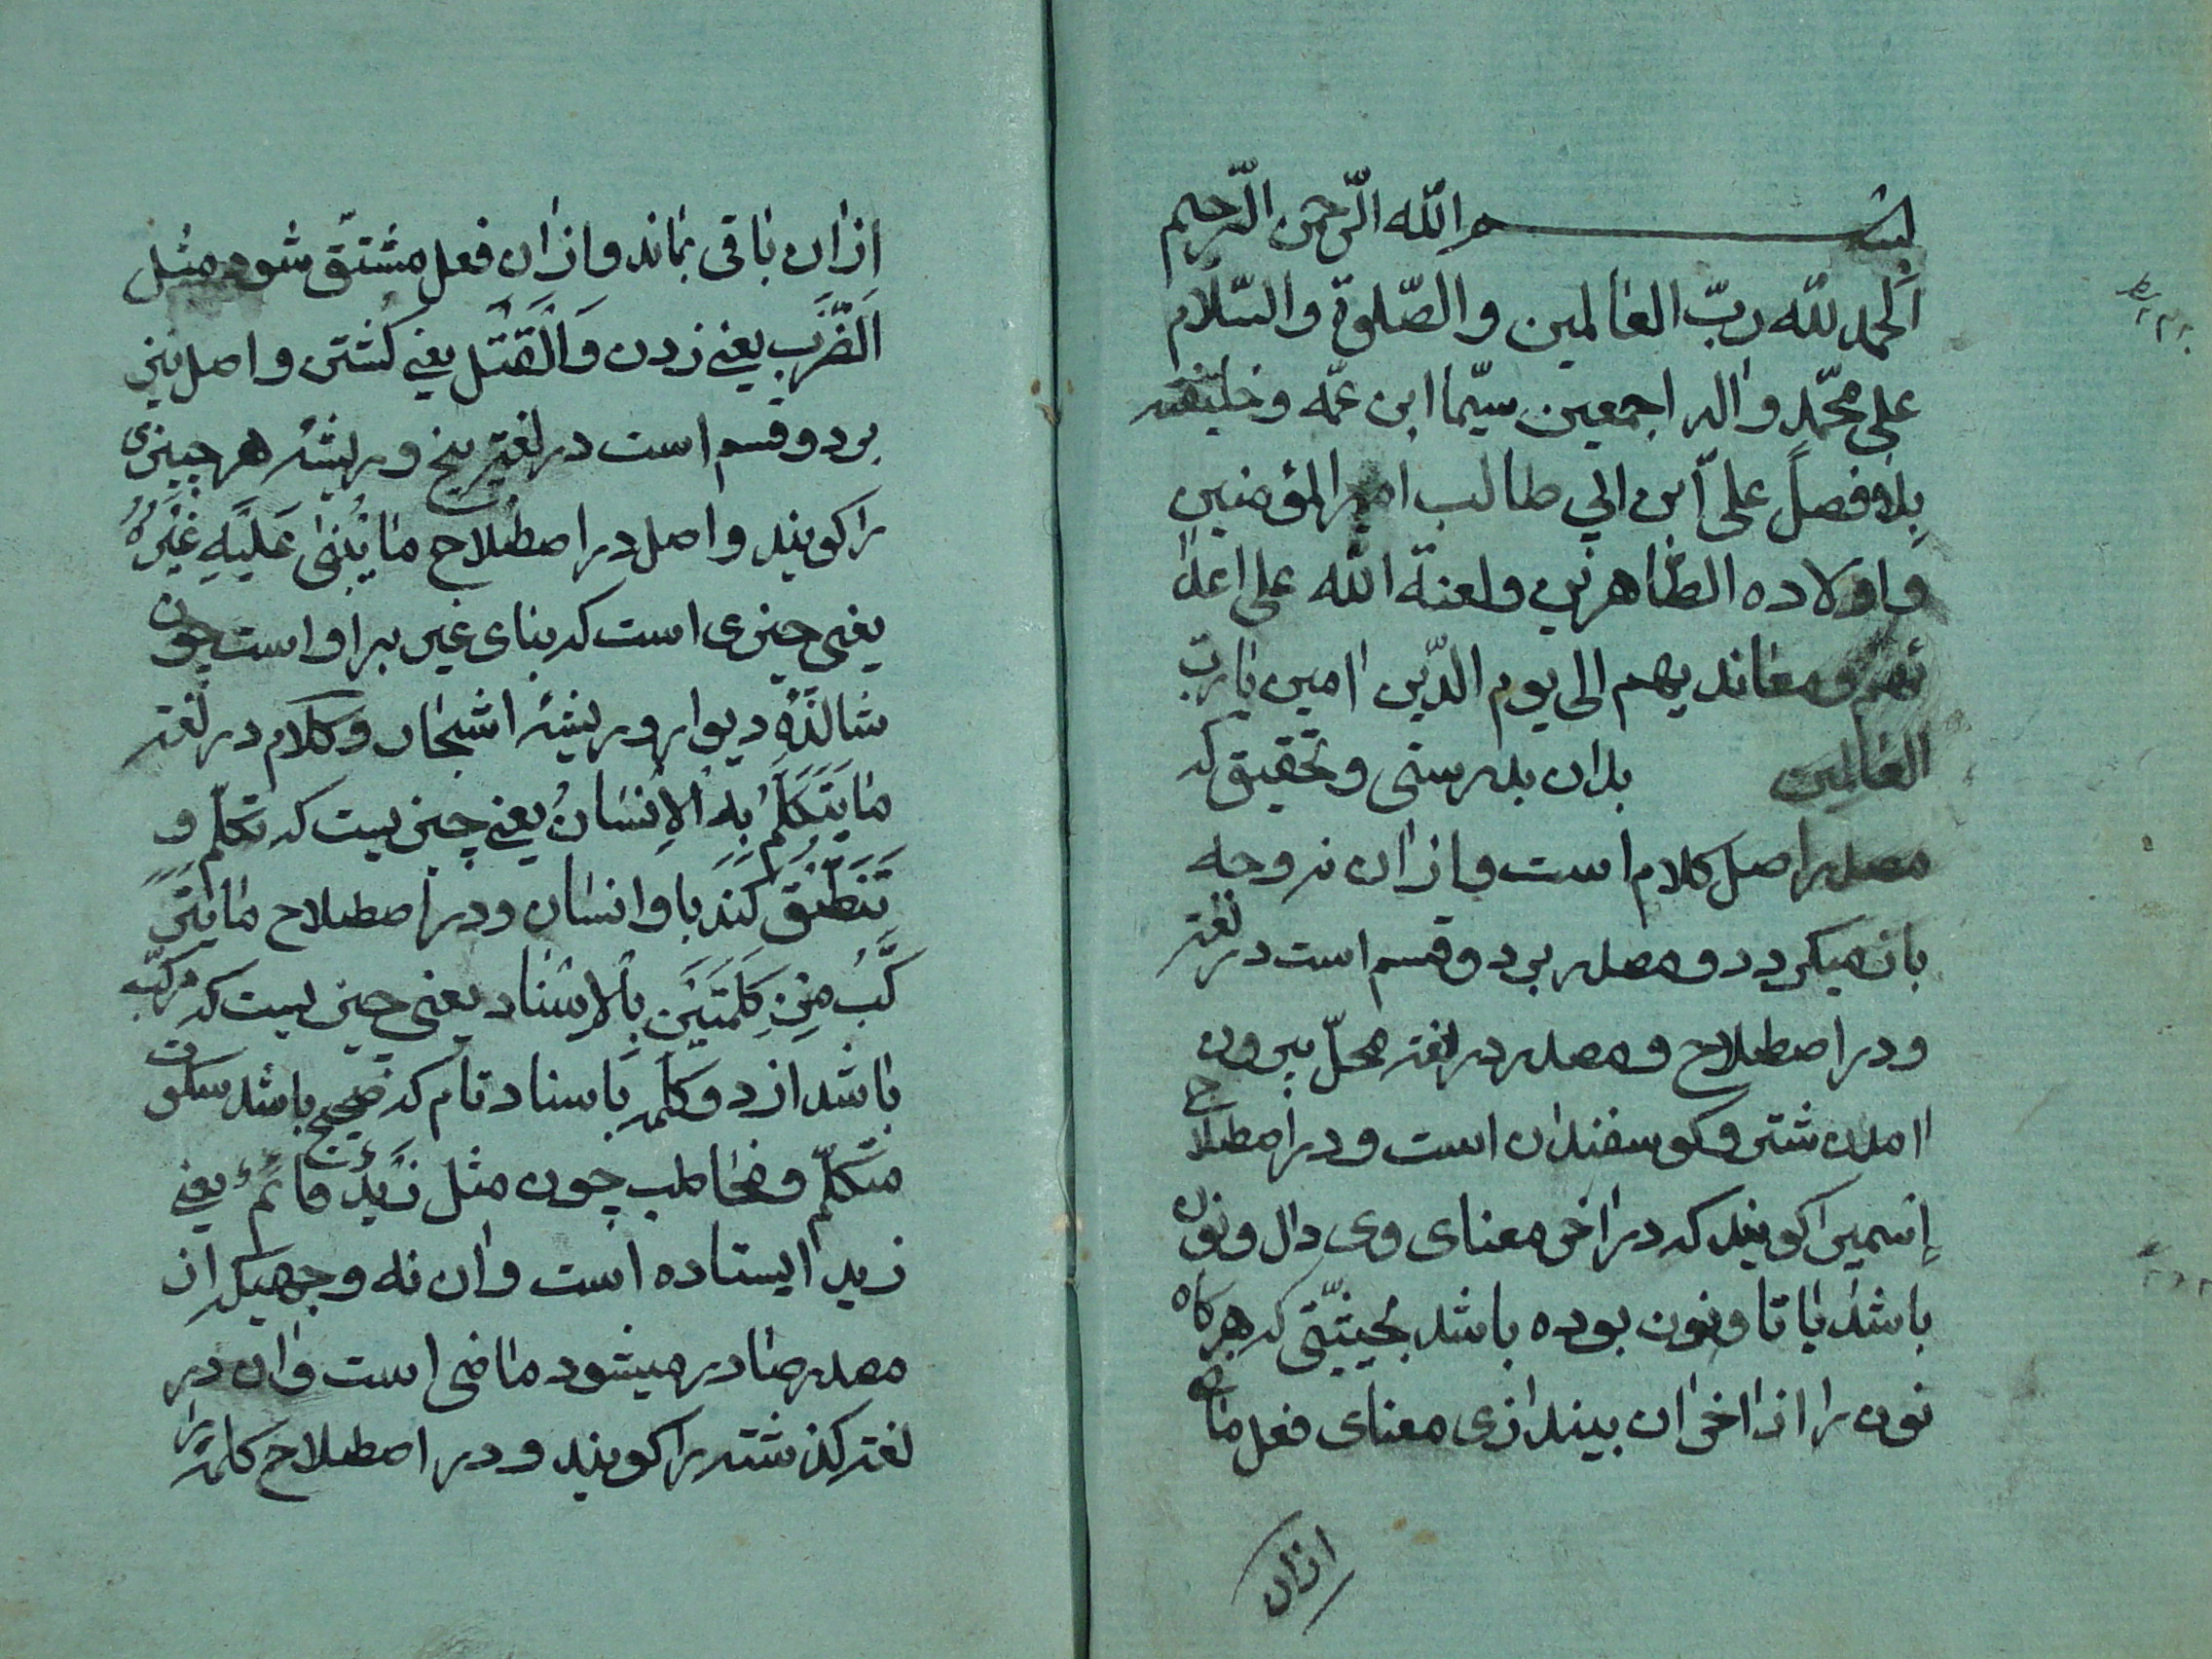 بسم الله الرّحمن الرّحیم
الحمد للّه ربّ العالمین والصّلوة والسّلام
علی محمّد واله اجمعین سیّما ابن عمّه وخلیفته
بلا فصل علیّ ابن ابی طالب امیر المؤمنین
واولاده الطّاهرین ولعنة الله علی اعدا
ئهم ومعاندیهم الی یوم الدّین امین یا ربّ
العالمین بدان بدرستی وتحقیق که
مصدر اصل کلام است وازان نه وجه
باز میکردد ومصدر بر دو قسم است در لغته
ودر اصطلاح ومصدر در لغته محلّ بیرون
امدن شتر وکوسفندان است ودر اصطلاح
اسمیرا کویند که در اخر معنای وی دال ونون
باشد یا تا ونون بوده باشد بحیثیّتی که هرکاه
نون را از اخر ان بیندازی معنای فعل ماض
ازان
ازان باقی بماند وازان فعل مشتقّ شود مثل
الضّرب یعنی زدن والقتل یعنی کشتن واصل نیز
بر دو قسم است در لغته بیخ وریشهٔ هر چیزی
را کویند واصل در اصطلاح ما یبنی علیه غیره
یعنی چیزی است که بنای غیر بر او است چون
شالدهٔ دیوار وریشهٔ اشجار وکلام در لغته
ما یتکلّم به الانسان یعنی چیزیست که تکلّم و
تنطّق کند باو انسان ودر اصطلاح ما یتر
کّب من کلمتین بالاسناد یعنی چیزیست که مرکّب
باشد از دو کلمه باسناد تام که صحیح باشد سکوت
متکلّم ومخاطب چون مثل زید قائم یعنی
زید ایستاده است وان نه وجهیکه از
مصدر صادر میشود ماضی است وان در
لغته کذشته را کویند ودر اصطلاح کلمه را